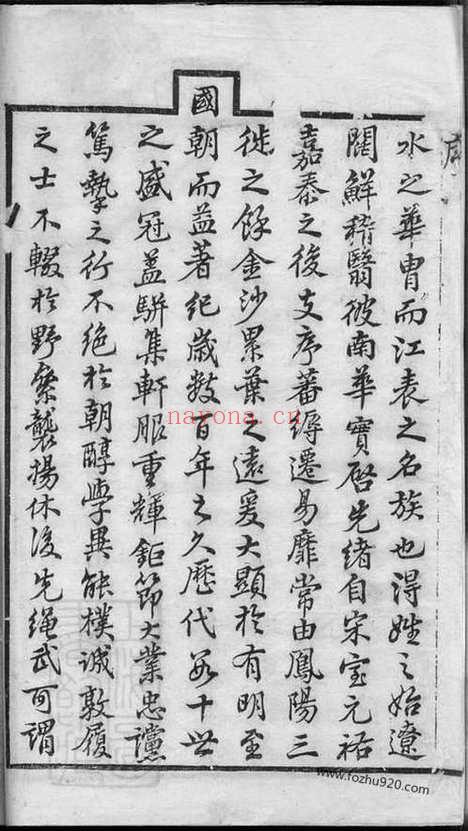 水之華胄而江表之名族也得姓之始遼
闊鮮稽翳彼南華實啓先緒自宋宝元祐
嘉泰之後支序蕃縟遷易靡常由鳳陽三
徙之餘金沙累葉之遠爰大顯於有明至
國朝而益著紀歲数百年之久歷代若十世
之盛冠葢駢集軒服重輝鉅節大業忠讜
篤摯之行不絕於朝醇學異能樸诚敦履
之士不輟於野纂襲揚休後先绳武可謂
nayona.cn
www.fozhu920.com